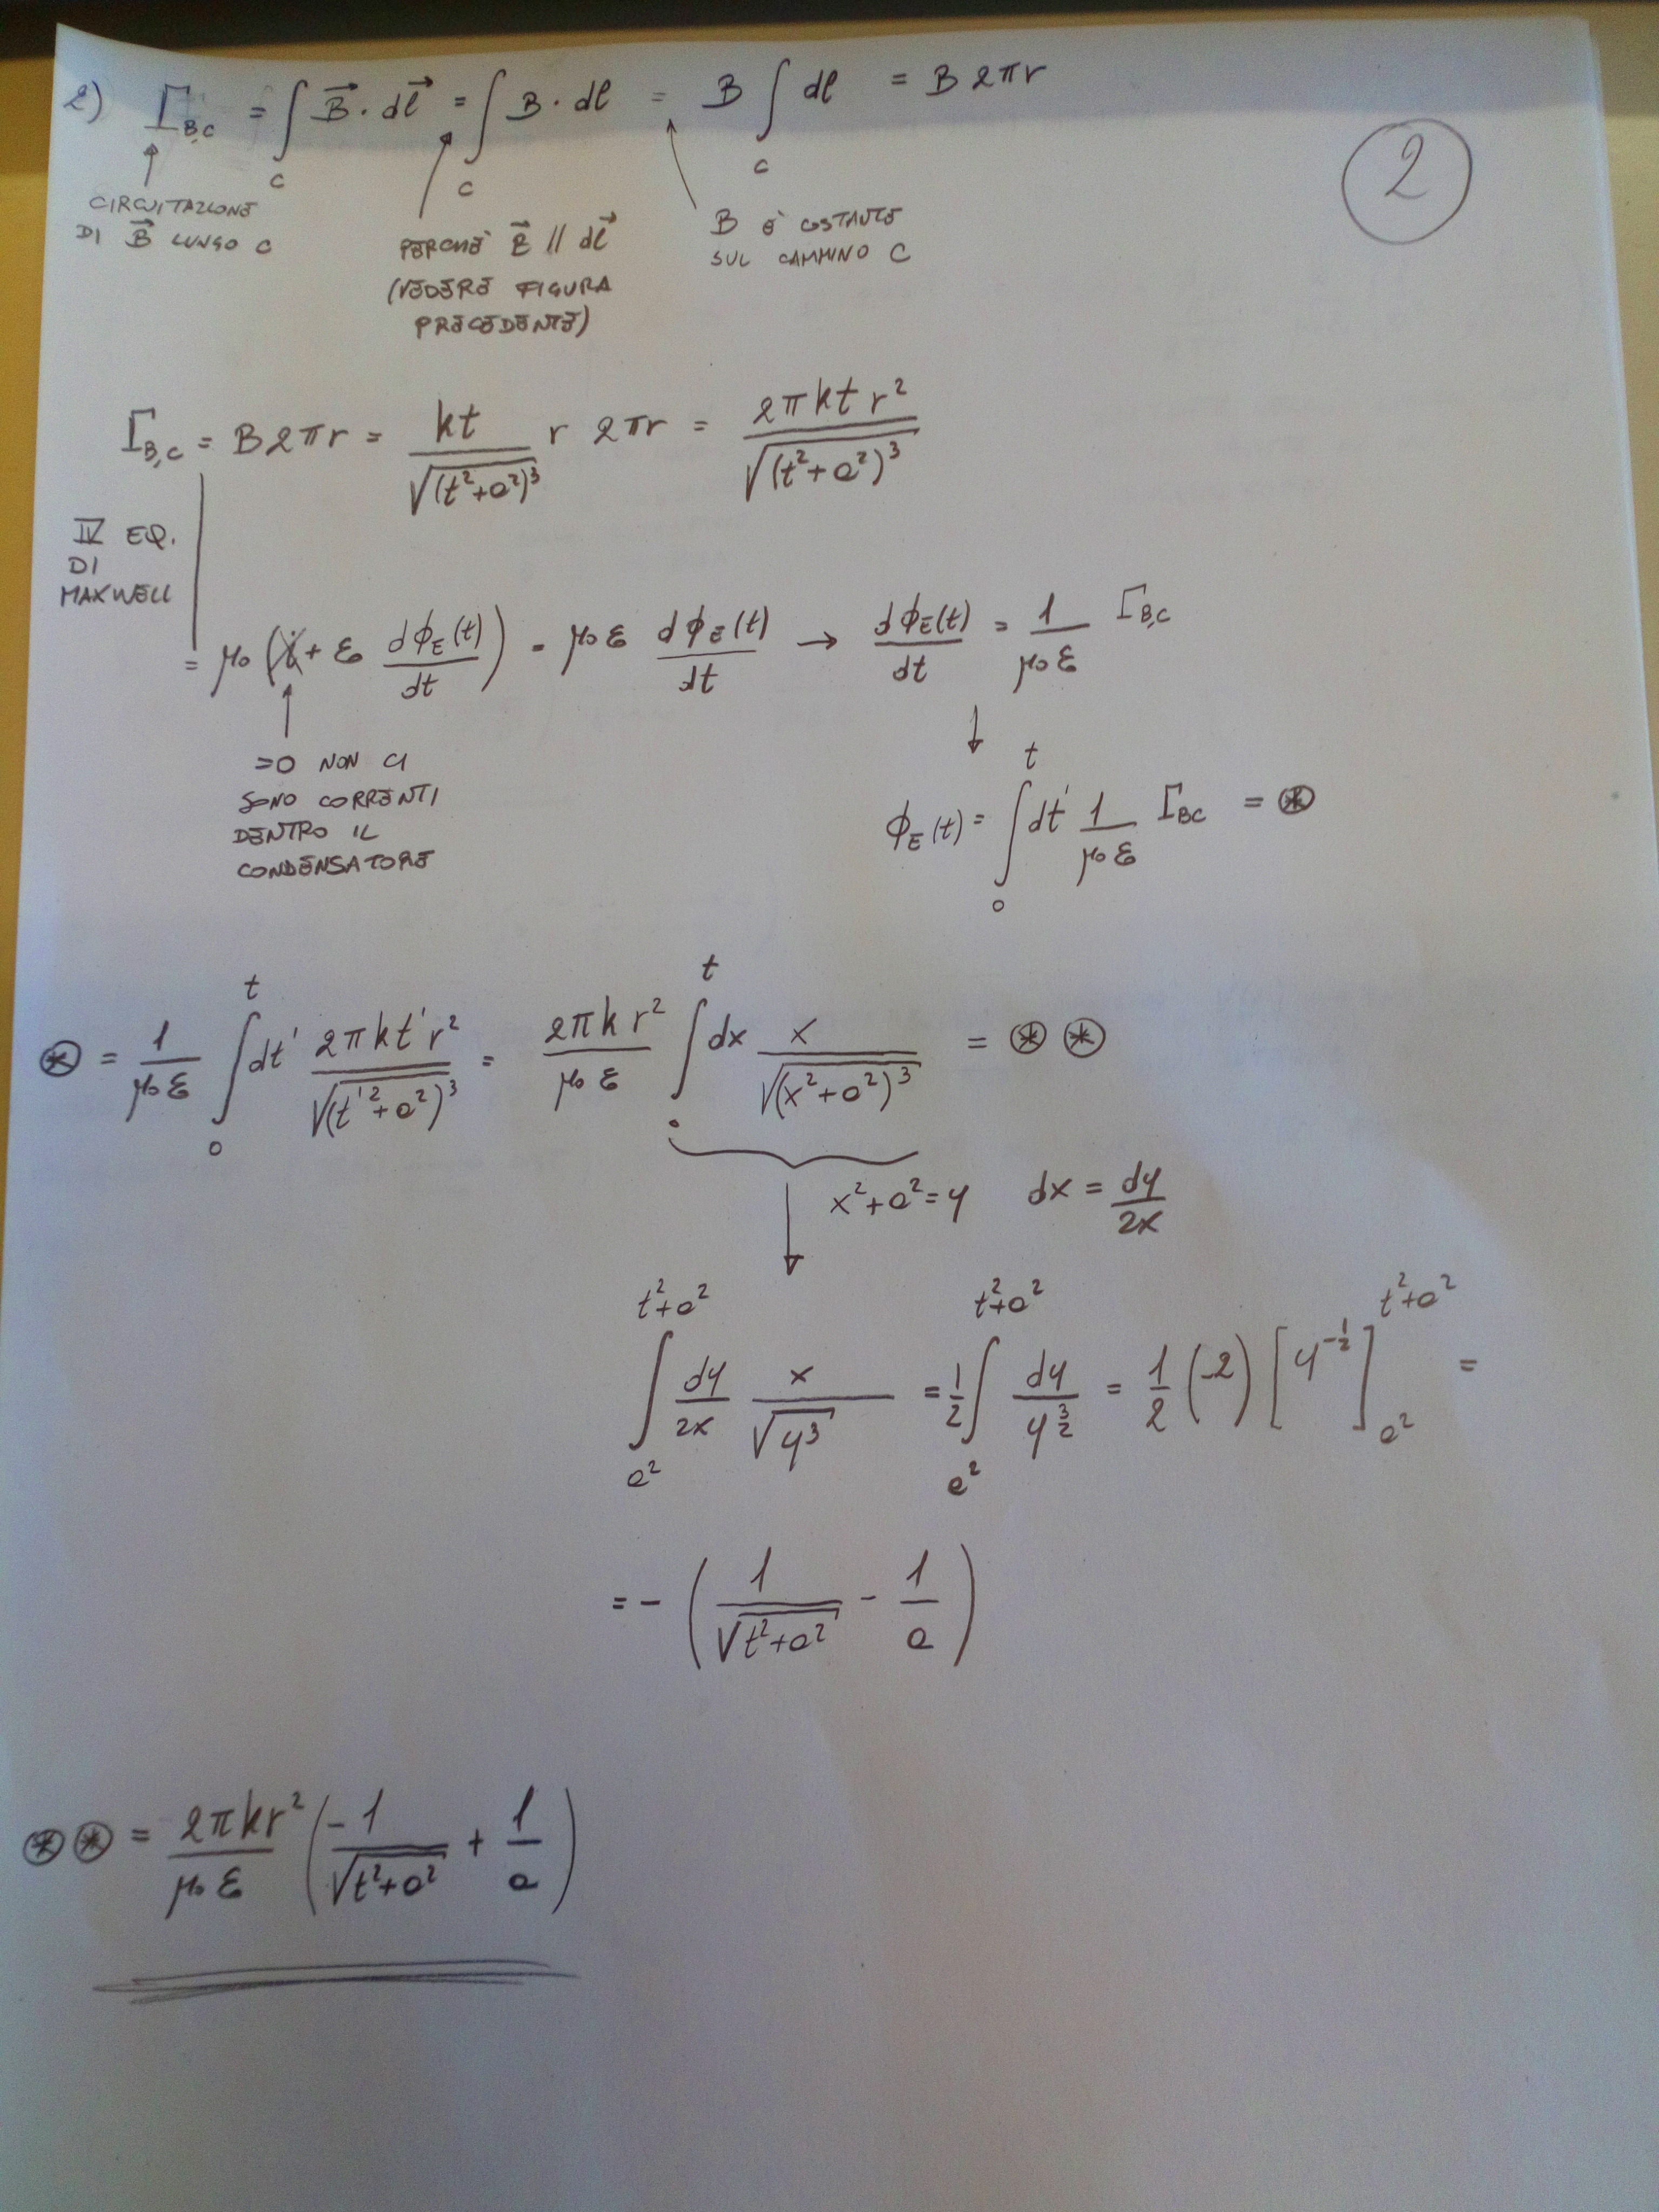 2) Γ_B,C = ∫_C B⃗ · dl⃗ = ∫_C B · dl = B ∫_C dl = B 2πr
2
CIRCUITAZIONE
DI B⃗ LUNGO C
PERCHÈ B⃗ // dl⃗
(VEDERE FIGURA
PRECEDENTE)
B È COSTANTE
SUL CAMMINO C
Γ_B,C = B 2πr = kt / √(t²+a²)³ r 2πr = 2πktr² / √(t²+a²)³
IV EQ.
DI
MAXWELL
= μ₀ (i + ε dϕ_E(t)/dt) = μ₀ε dϕ_E(t)/dt → dϕ_E(t)/dt = 1/(μ₀ε) Γ_B,C
=0 NON CI
SONO CORRENTI
DENTRO IL
CONDENSATORE
ϕ_E(t) = ∫_0^t dt' 1/(μ₀ε) Γ_BC = ⊛
⊛ = 1/(μ₀ε) ∫_0^t dt' 2πkt'r² / √(t'²+a²)³ = 2πkr²/(μ₀ε) ∫_0^t dx x / √(x²+a²)³ = ⊛ ⊛
x²+a²=y dx = dy/2x
∫_a²^t²+a² dy/2x x/√y³ = 1/2 ∫_a²^t²+a² dy/y^(3/2) = 1/2 (-2) [y^(-1/2)]_a²^t²+a² =
= - (1/√(t²+a²) - 1/a)
⊛⊛ = 2πkr²/(μ₀ε) (-1/√(t²+a²) + 1/a)